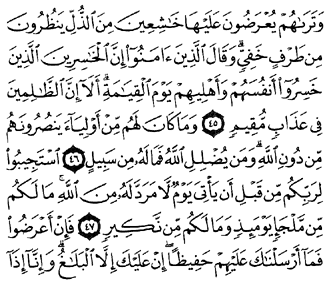 وَتَرَىٰهُمْ يُعْرَضُونَ عَلَيْهَا خَٰشِعِينَ مِنَ ٱلذُّلِّ يَنظُرُونَ
مِن طَرْفٍ خَفِىٍّ ۗ وَقَالَ ٱلَّذِينَ ءَامَنُوٓا۟ إِنَّ ٱلْخَٰسِرِينَ ٱلَّذِينَ
خَسِرُوٓا۟ أَنفُسَهُمْ وَأَهْلِيهِمْ يَوْمَ ٱلْقِيَٰمَةِ ۗ أَلَآ إِنَّ ٱلظَّٰلِمِينَ
فِى عَذَابٍ مُّقِيمٍ ٤٥ وَمَا كَانَ لَهُم مِّنْ أَوْلِيَآءَ يَنصُرُونَهُم
مِّن دُونِ ٱللَّهِ ۗ وَمَن يُضْلِلِ ٱللَّهُ فَمَا لَهُۥ مِن سَبِيلٍ ٤٦ ٱسْتَجِيبُوا۟
لِرَبِّكُم مِّن قَبْلِ أَن يَأْتِىَ يَوْمٌ لَّا مَرَدَّ لَهُۥ مِنَ ٱللَّهِ ۚ مَا لَكُم
مِّن مَّلْجَإٍ يَوْمَئِذٍ وَمَا لَكُم مِّن نَّكِيرٍ ٤٧ فَإِنْ أَعْرَضُوا۟
فَمَآ أَرْسَلْنَٰكَ عَلَيْهِمْ حَفِيظًا ۖ إِنْ عَلَيْكَ إِلَّا ٱلْبَلَٰغُ ۗ وَإِنَّآ إِذَآ